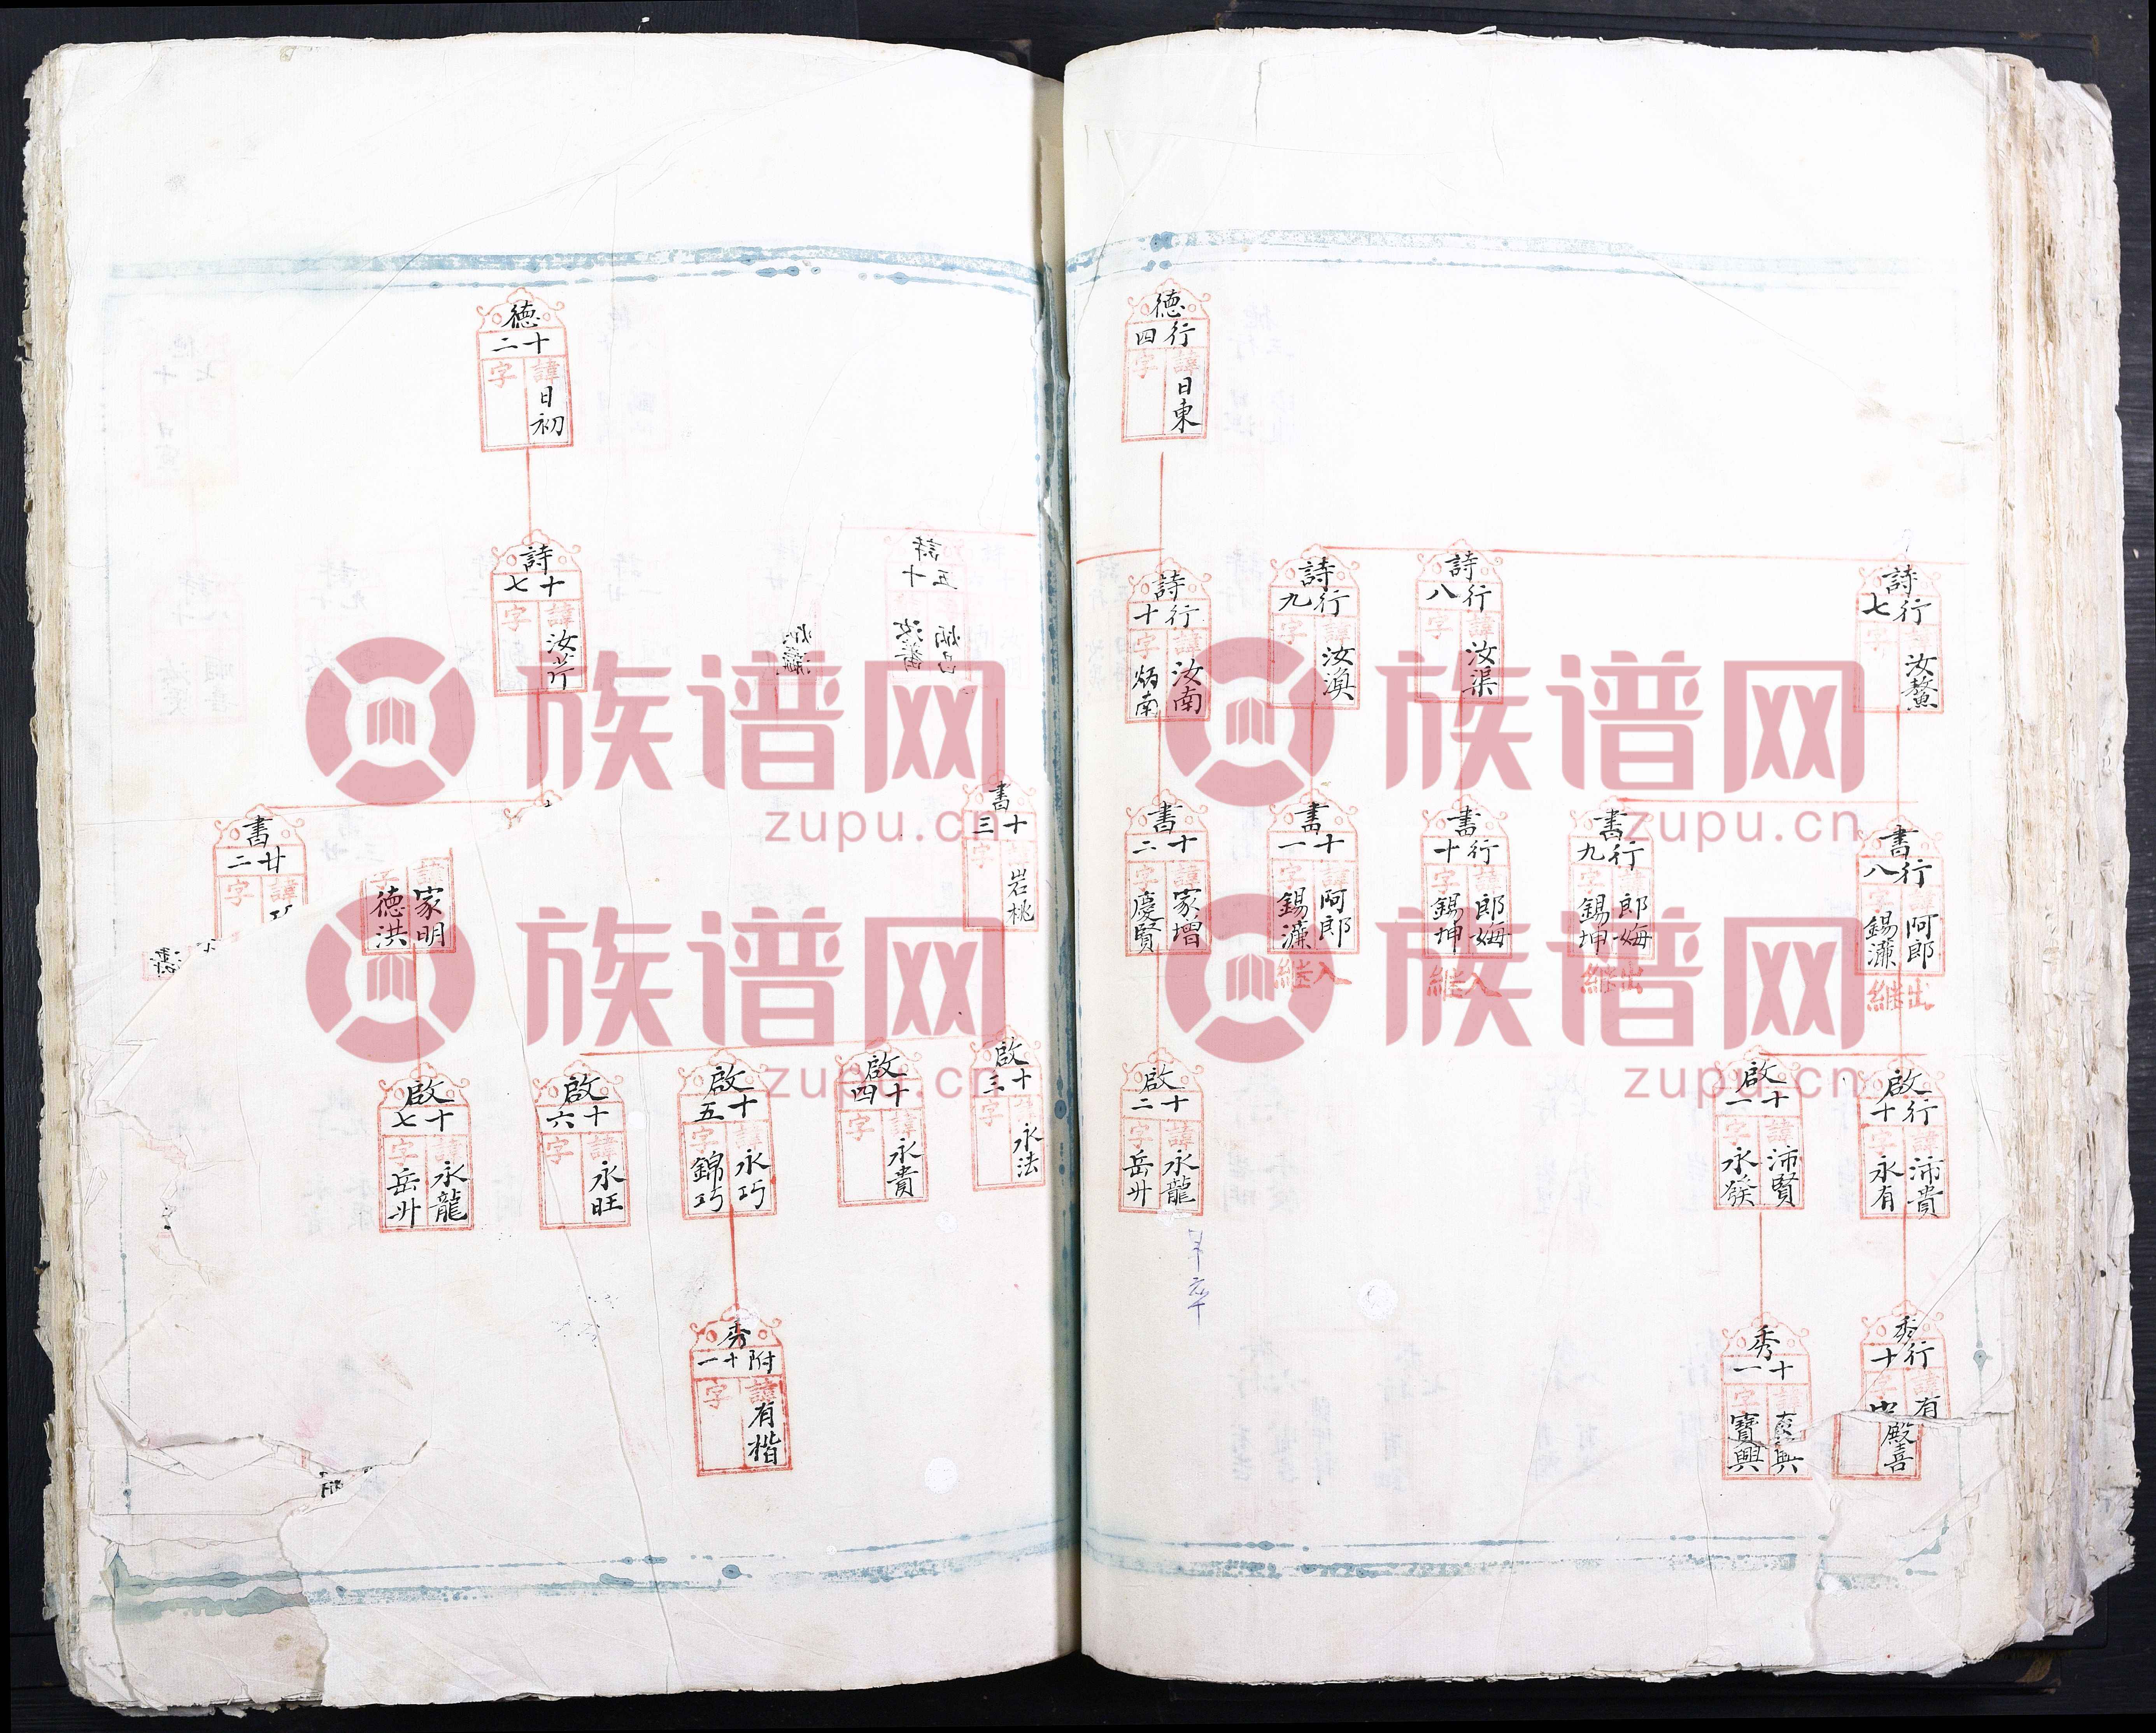 德
行四
諱 日東
字
詩
行七
汝鰲
字
詩
行八
諱 汝渠
字
詩
行九
諱 汝滇
字
詩
行十
諱 汝南
字 炳南
書
行八
阿郎
字 錫濂
出継
書
行九
諱 郎娒
字 錫坤
出継
書
行十
諱 郎娒
字 錫坤
入継
書
十一
諱 阿郎
字 錫濂
入継
書
十二
諱 家增
字 慶賢
啟
行十
諱 沛貴
字 永有
啟
十一
諱 沛賢
字 永發
啟
十二
諱 永龍
字 岳州
秀
行十
諱 有
字
殿喜
秀
十一
諱
字 寶興
德
十二
諱 日初
字
詩
十五
詩
十七
諱 汝芹
字
書
十三
岩桃
字
諱 家明
字 德洪
書
廿二
諱
字
啟
十三
永法
字
啟
十四
諱 永貴
字
啟
十五
諱 永巧
字 錦巧
啟
十六
諱 永旺
字
啟
十七
諱 永龍
字 岳州
秀
附十一
諱 有楷
字
族谱网
zupu.cn
族谱网
zupu.cn
族谱网
zupu.cn
族谱网
zupu.cn